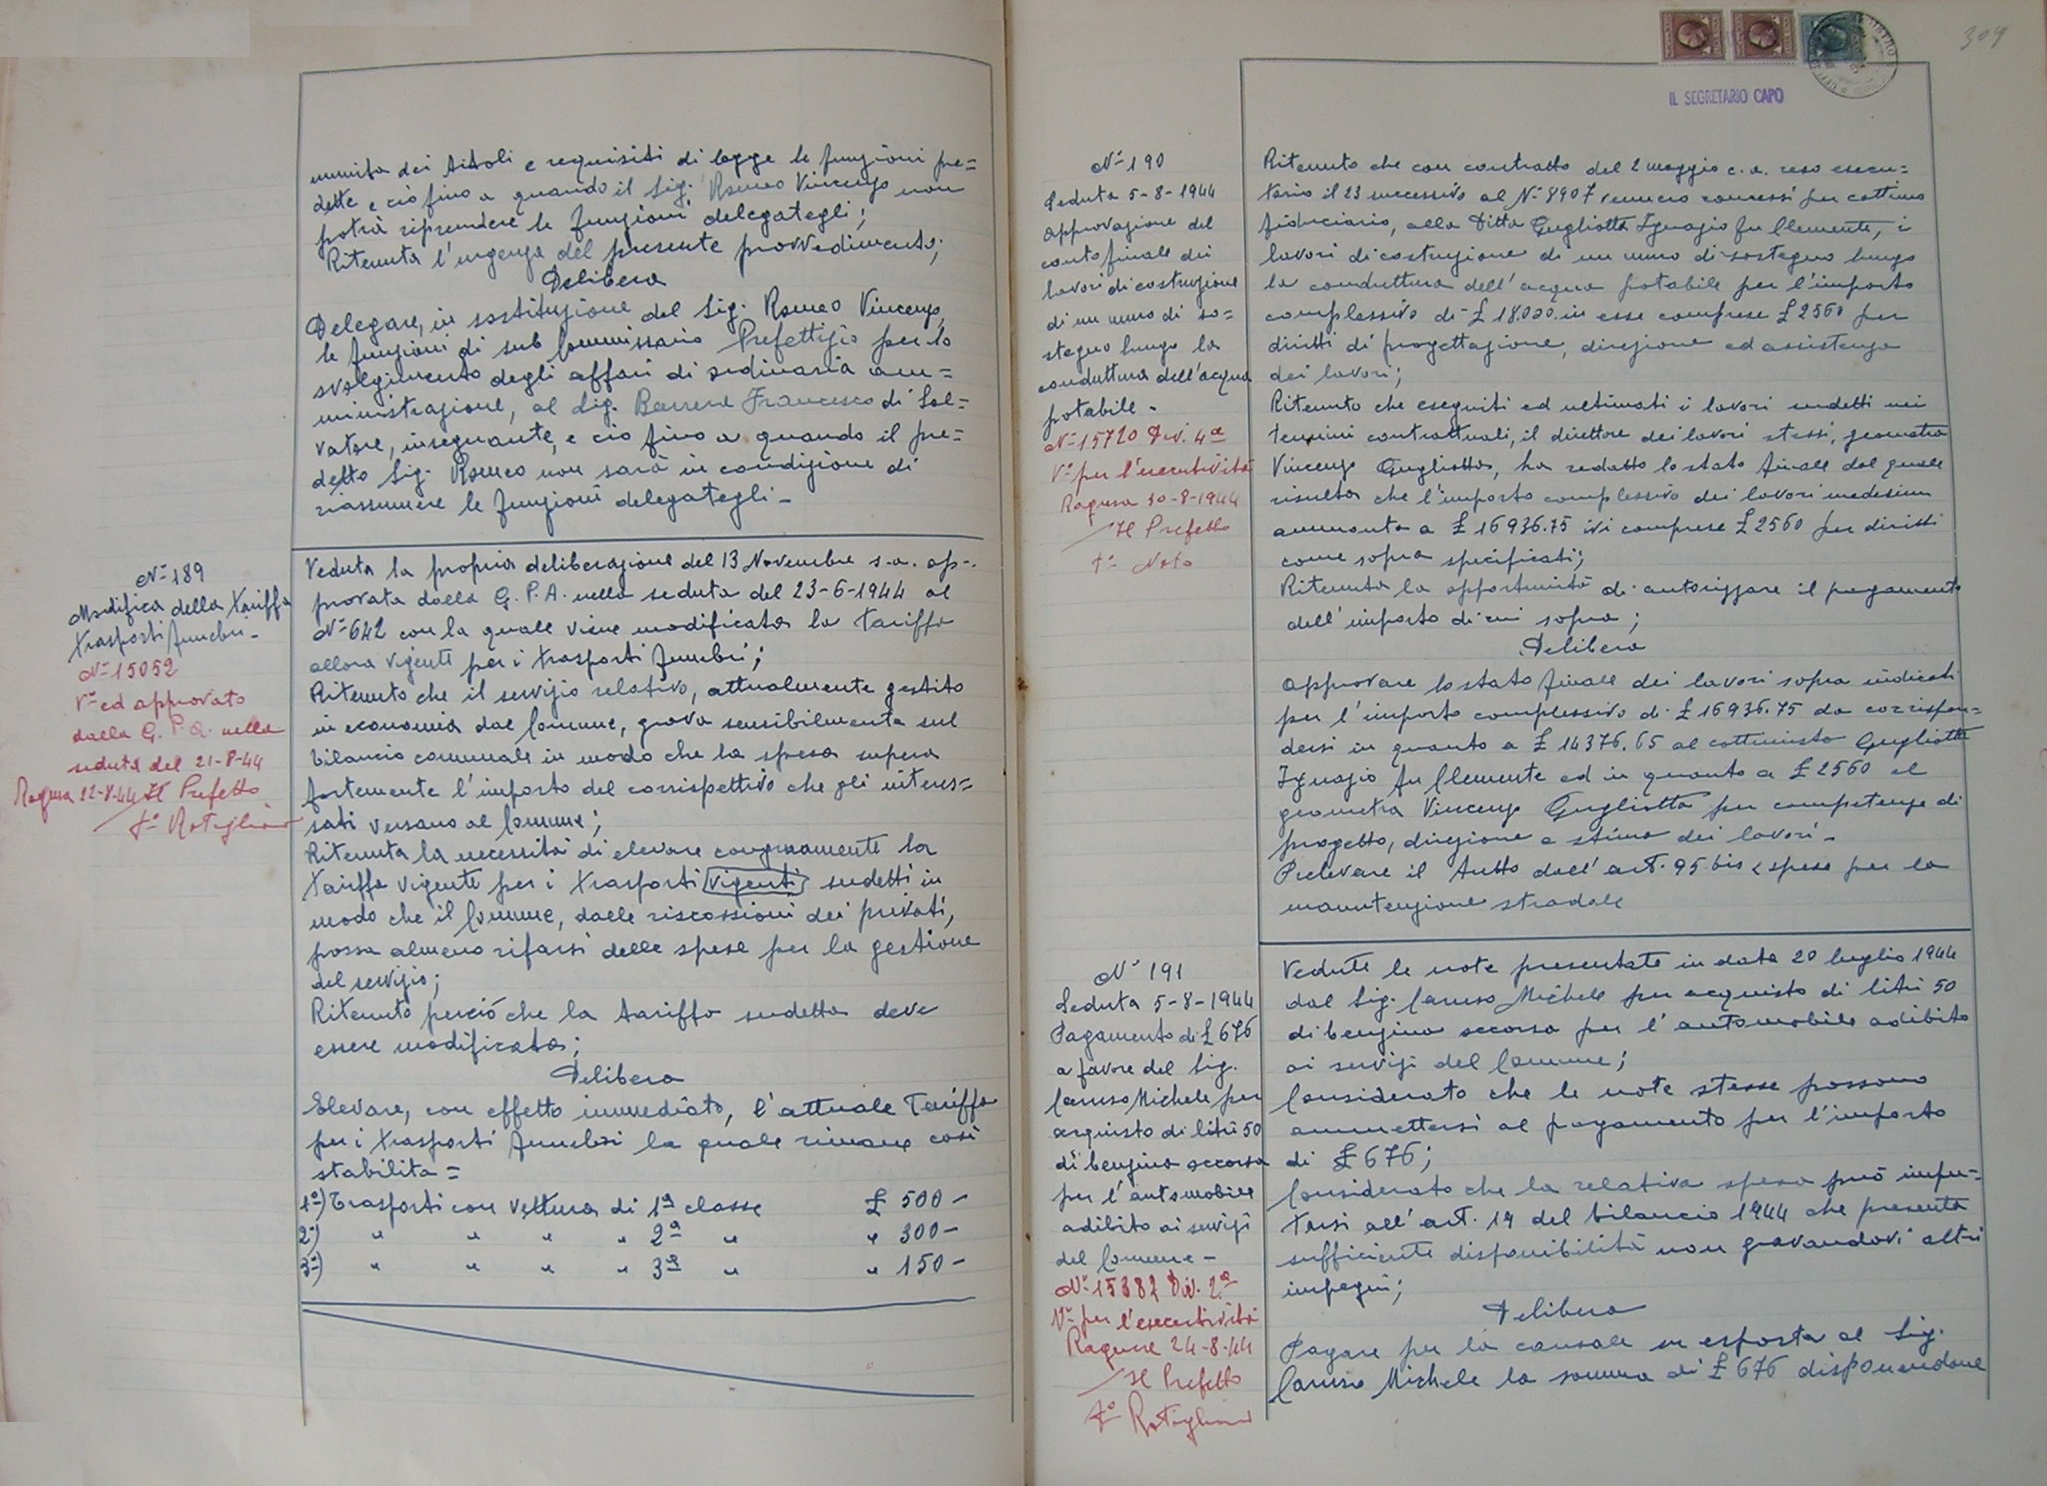 munita dei titoli e requisiti di legge le funzioni pre=
dette e ciò fino a quando il Sig. Romeo Vincenzo non
potrà riprendere le funzioni delegategli;
Ritenuta l'urgenza del presente provvedimento;
Delibera
Delegare, in sostituzione del Sig. Romeo Vincenzo,
le funzioni di sub Commissario Prefettizio per lo
svolgimento degli affari di ordinaria am=
ministrazione, al Sig. Barrera Francesco di Sal=
vatore, insegnante, e ciò fino a quando il pre=
detto Sig. Romeo non sarà in condizione di
riassumere le funzioni delegategli -
N° 189
Modifica della tariffa
trasporti funebri -
N° 15052
V° ed approvato
dalla G. P. A. nella
seduta del 21-8-44
Ragusa 22-8-44 Il Prefetto
f°
Veduta la propria deliberazione del 13 Novembre s.a. ap-
provata dalla G. P. A. nella seduta del 23-6-1944 al
N° 642 con la quale viene modificata la tariffa
allora vigente per i trasporti funebri;
Ritenuto che il servizio relativo, attualmente gestito
in economia dal Comune, grava sensibilmente sul
bilancio comunale in modo che la spesa supera
fortemente l'importo del corrispettivo che gli interes=
sati versano al Comune;
Ritenuta la necessità di elevare congruamente la
tariffa vigente per i trasporti vigenti sudetti in
modo che il Comune, dalle riscossioni dei privati,
possa almeno rifarsi delle spese per la gestione
del servizio;
Ritenuto perciò che la tariffa sudetta deve
essere modificata;
Delibera
Elevare, con effetto immediato, l'attuale Tariffa
per i trasporti funebri la quale rimane così
stabilita =
1°) Trasporti con vettura di 1ª classe £ 500 -
2°) " " " " 2ª " " 300 -
3°) " " " " 3ª " " 150 -
309
IL SEGRETARIO CAPO
N° 190
Seduta 5-8-1944
Approvazione del
conto finale dei
lavori di costruzione
di un muro di so=
stegno lungo la
conduttura dell'acqua
potabile -
N° 15720 Div. 4ª
V° per l'esecutività
Ragusa 30-8-1944
Il Prefetto
f° Noto
Ritenuto che con contratto del 2 maggio c.a. reso esecu=
torio il 23 successivo al N° 8907 vennero concessi per cottimo
fiduciario, alla Ditta Gugliotta Ignazio fu Clemente, i
lavori di costruzione di un muro di sostegno lungo
la conduttura dell'acqua potabile per l'importo
complessivo di £ 18.000. in esse comprese £ 2560 per
diritti di progettazione, direzione ed assistenza
dei lavori;
Ritenuto che eseguiti ed ultimati i lavori sudetti nei
termini contrattuali, il direttore dei lavori stessi, geometra
Vincenzo Gugliotta, ha redatto lo stato finale dal quale
risulta che l'importo complessivo dei lavori medesimi
ammonta a £ 16936.75 ivi comprese £ 2560 per diritti
come sopra specificati;
Ritenuta la opportunità di autorizzare il pagamento
dell'importo di cui sopra;
Delibera
Approvare lo stato finale dei lavori sopra indicati
per l'importo complessivo di £ 16936.75 da corrispon=
dersi in quanto a £ 14376.65 al cottimista Gugliotta
Ignazio fu Clemente ed in quanto a £ 2560 al
geometra Vincenzo Gugliotta per competenze di
progetto, direzione e stima dei lavori -
Prelevare il tutto dall'art. 95 bis < spese per la
manutenzione stradale
N° 191
Seduta 5-8-1944
Pagamento di £ 676
a favore del Sig.
Caruso Michele per
acquisto di litri 50
di benzina occorsa
per l'automobile
adibito ai servizi
del Comune -
N° 15382 Div. 2ª
V° per l'esecutività
Ragusa 24-8-44
Il Prefetto
f°
Vedute le note presentate in data 20 luglio 1944
dal Sig. Caruso Michele per acquisto di litri 50
di benzina occorsa per l'automobile adibito
ai servizi del Comune;
Considerato che le note stesse possono
ammettersi al pagamento per l'importo
di £ 676;
Considerato che la relativa spesa può impu=
tarsi all'art. 19 del bilancio 1944 che presenta
sufficiente disponibilità non gravandovi altri
impegni;
Delibera
Pagare per la causale su esposta al Sig.
Caruso Michele la somma di £ 676 disponendone